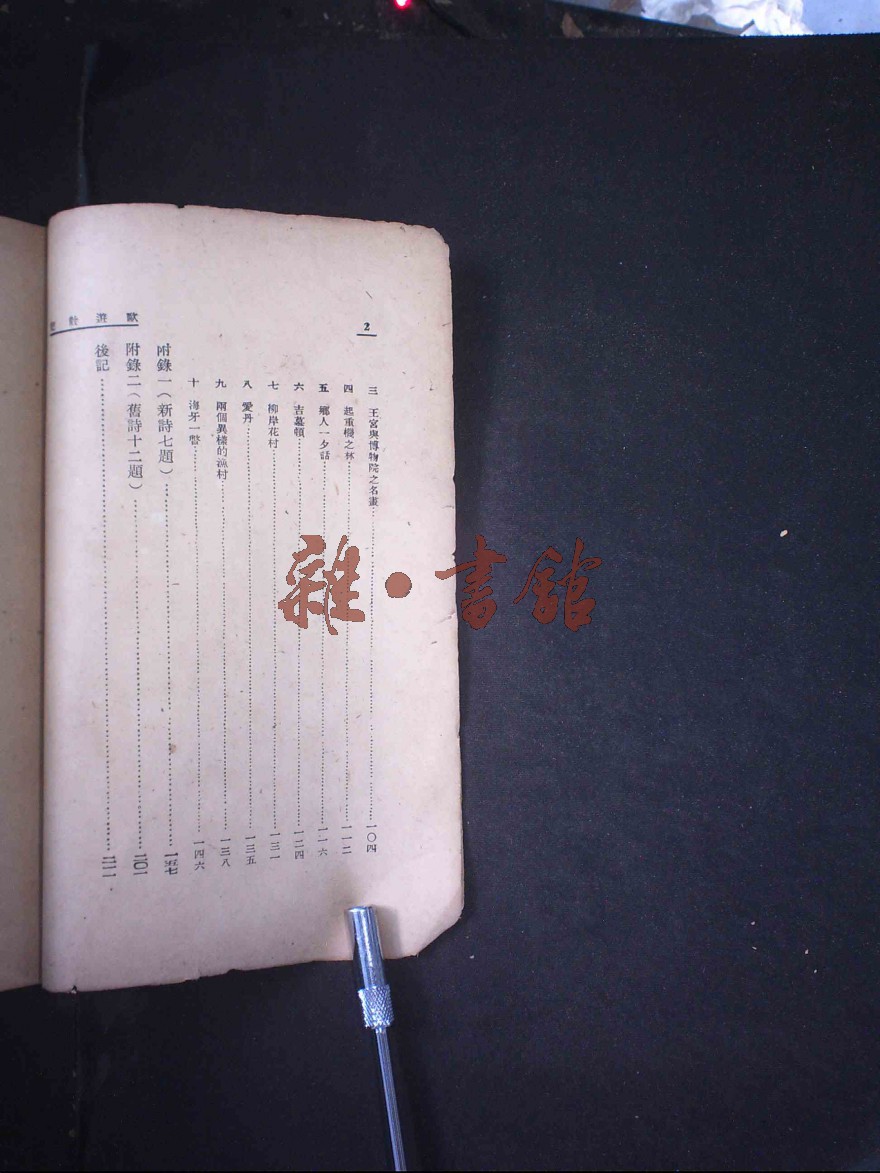 2
三 王宮與博物院之名畫 一〇四
四 起重機之林 一一二
五 鄉人一夕話 一一六
六 吉墓頓 一二四
七 柳岸花村 一三一
八 愛丹 一三五
九 兩個異樣的漁村 一三八
十 海牙一瞥 一四六
附錄一(新詩七題) 一五七
附錄二(舊詩十二題) 二〇一
後記 二一一
歐遊
雜·書館